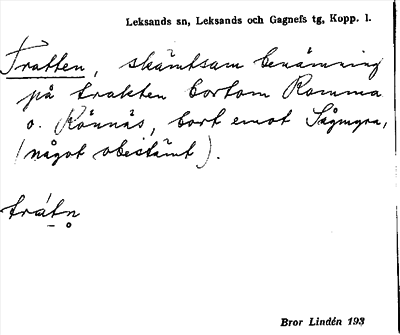 Leksands sn, Leksands och Gagnefs tg, Kopp. l.
Tratten, skämtsam benämning
på trakten bortom Romma
o. Rönnäs, bort emot Sågmyra,
(något obestämt).
trátn̥
Bror Lindén 193